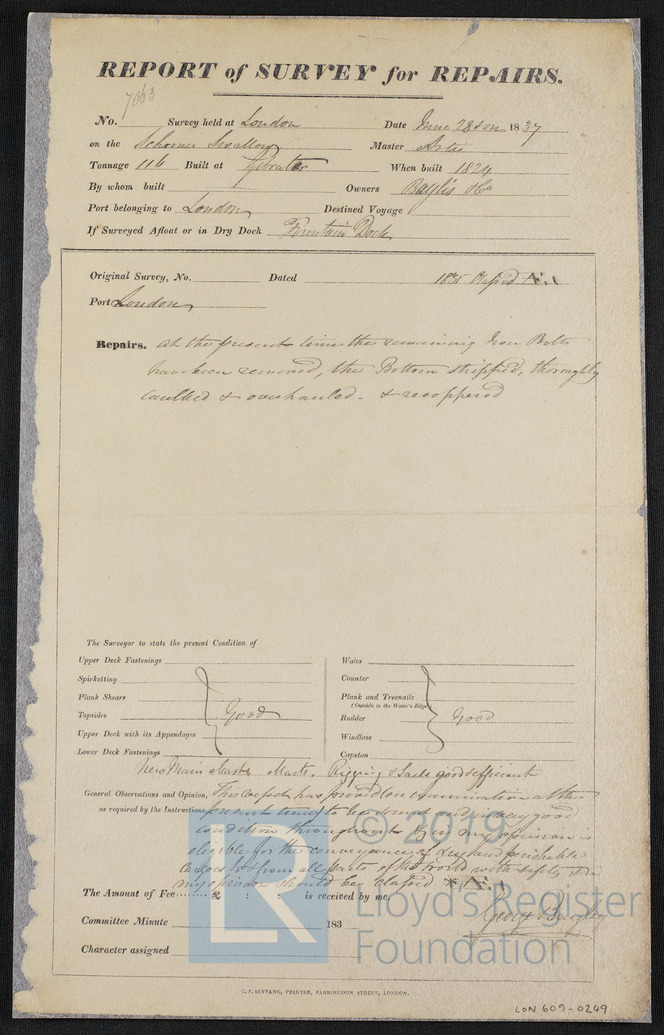 REPORT of SURVEY for REPAIRS.
7063
No. Survey held at London Date June 28 1837
on the Schooner Swallow Master
Tonnage 116 Built at When built 1824
By whom built Owners Baylis & Co
Port belonging to London Destined Voyage
If Surveyed Afloat or in Dry Dock Fountain Dock
Original Survey, No. Dated 1835 Classed A.1
Port London
Repairs. at the present time the remaining Iron Bolts
have been removed, the Bottom stripped, thoroughly
caulked & overhauled - & recoppered
The Surveyor to state the present Condition of
Upper Deck Fastenings
Spirketting
Plank Shears
Topsides
Upper Deck with its Appendages
Lower Deck Fastenings
Good
Wales
Counter
Plank and Treenails
(Outside to the Water's Edge)
Rudder
Windlass
Capstan
Good
New Main Mast Masts, Rigging & Sails good & sufficient
General Observations and Opinion, This vessel has proved on examination at the
as required by the Instructions present time to be sound and in very good
condition throughout & in my opinion is
eligible for the conveyance of dry and perishable
Cargoes to & from all parts of the World with safety & in
my opinion should be Classed * A.1
The Amount of Fee £ : : is received by me,
Committee Minute 183
Character assigned
© 2019
LR
Lloyd's Register
Foundation
C. F. SEYFANG, PRINTER, FARRINGDON STREET, LONDON.
LON 609-0249